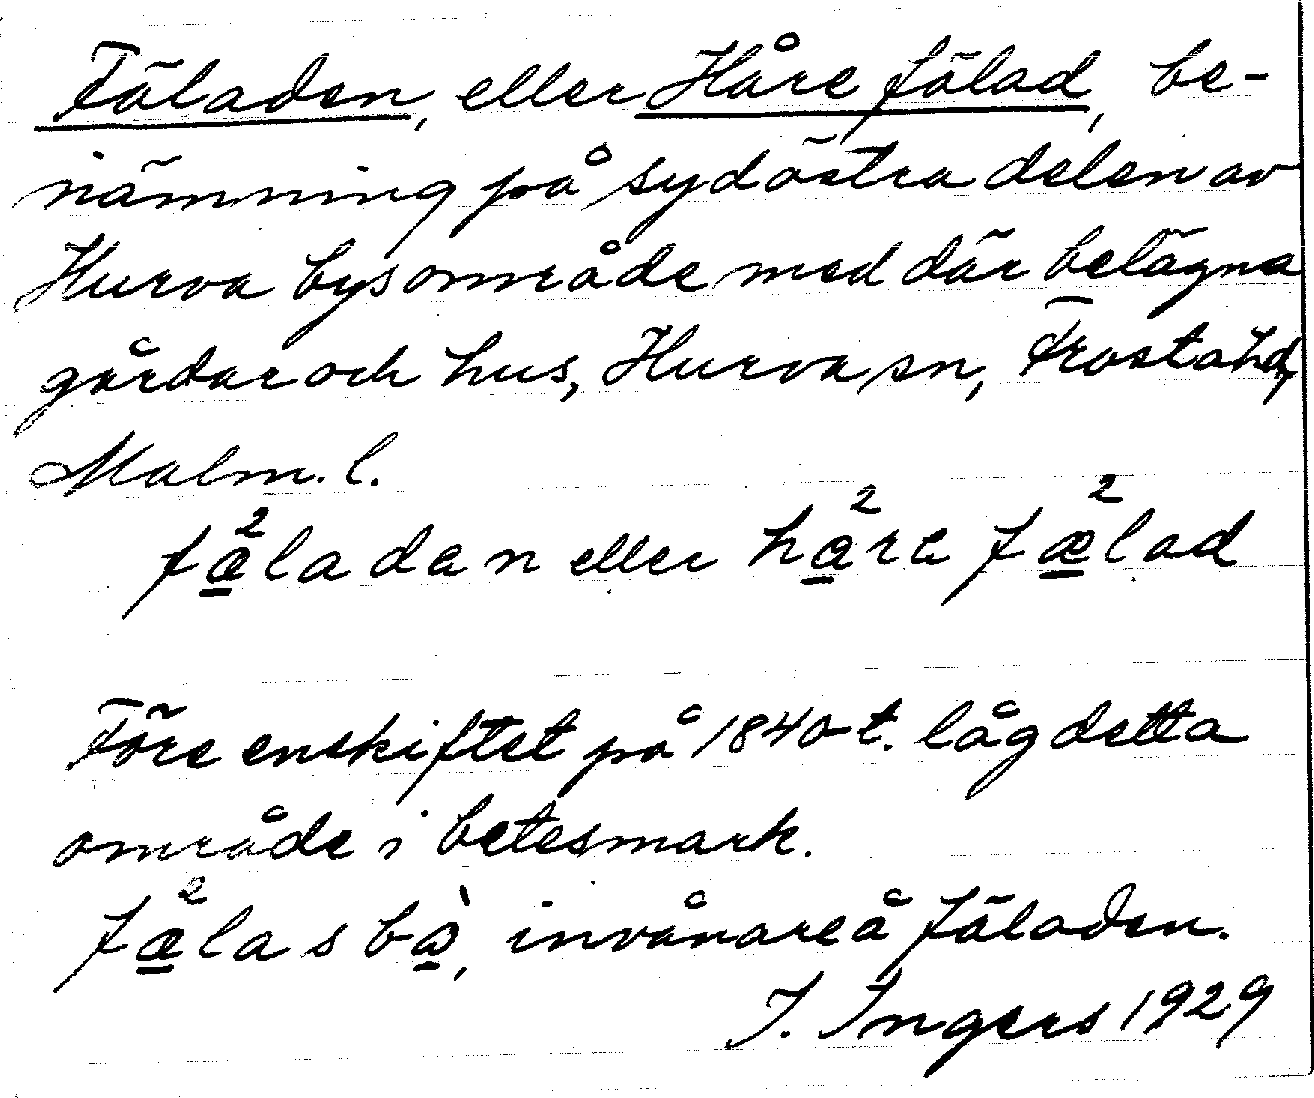 Fäladen, eller Håre fälad, be-
nämning på sydöstra delen av
Hurva bys område med där belägna
gårdar och hus, Hurva sn, Frosta hd,
Malm. l.
fæ̱²laden eller hå̱²re fæ̱²lad
Före enskiftet på 1840-t. låg detta
område i betesmark.
fæ̱²lasbò̱, invånare å fäladen.
I. Ingers 1929